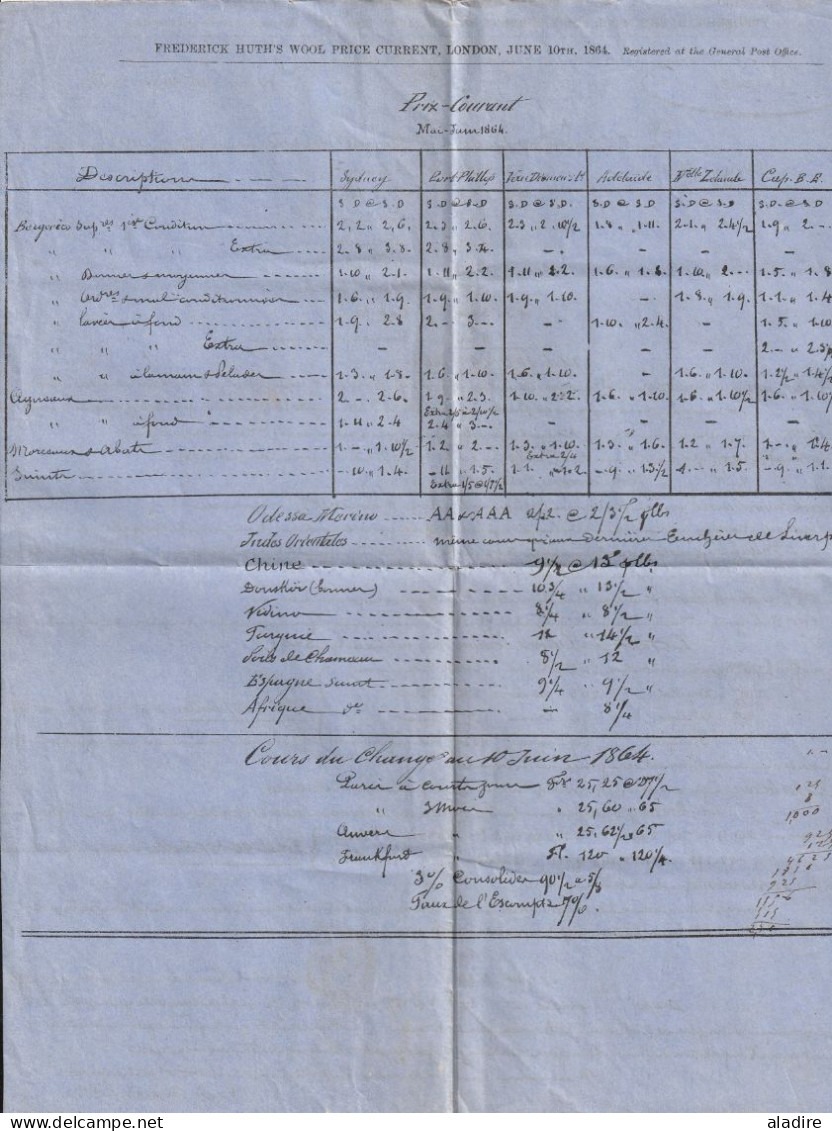 FREDERICK HUTH'S WOOL PRICE CURRENT, LONDON, JUNE 10TH, 1864. Registered at the General Post Office.
Prix-Courant
Mai-Juin 1864.
Description Sydney Port Phillip Van Diemen's Ld Adelaide Nlle Zélande Cap. B.E.
S. D @ S. D S. D @ S. D S. D @ S. D. S. D @ S. D S. D @ S. D S. D. @ S. D
Supres 1re Condition 2.2 " 2.6. 2.3 " 2.6. 2.3 " 2.10½ 1.8 " 1.11. 2.1. " 2.4½ 1.9 " 2.-
" " " Extra 2.8 " 3.8. 2.8 " 3.4. - - - -
" Bonne & moyenne 1.10 " 2.1. 1.11 " 2.2. 1.11 " 2.2. 1.6. " 1.8. 1.10. " 2.- 1.5. " 1.8
" Ordres & mal conditionnées 1.6. " 1.9. 1.9. " 1.10. 1.9. " 1.10. - 1.8. " 1.9. 1.1. " 1.4
" lavées à fond 1.9. " 2.8 2.- " 3.- - 1.10. " 2.4. - 1.5. " 1.10
" " " Extra - - - - - 2.- " 2.3½
" " à la main & Pelures 1.3. " 1.8. 1.6 " 1.10. 1.6. " 1.10. - 1.6. " 1.10. 1.2½ " 1.4½
Agneaux 2.- " 2.6. 1.9. " 2.3. 1.10. " 2.2. 1.6. " 1.10. 1.6. " 1.10½ 1.6. " 1.10½
" " à fond 1.11 " 2.4 2.4 " 3.- - - - -
Morceaux & Abats 1.- " 1.10½ 1.2 " 2.- 1.3. " 1.10. 1.3. " 1.6. 1.2 " 1.7. 1.- " 1.4
Extra 2/4
Suint -.10. " 1.4. -.11 " 1.5. 1.1. " 1.2 -.9. " 1.3½ " 1.5. -.9. " 1.1.
Odessa Merino AA & AAA 2/2. @ 2/3½ plbs
Indes Orientales même cours qu'aux dernières Enchères de Liverp
Chine 9½ @ 13 plbs
Donskoi 10¾ " 13½ "
8¼ " 8½ "
Turquie 11 " 14½ "
Poils de Chameau 8½ " 12 "
Espagne suint 9¼ " 9½ "
Afrique do - 8¼
Cours du Change au 10 Juin 1864.
Paris à courts jours Fr 25,25 @ 27½
" 3 Mois " 25,60 " 65
Anvers " " 25.62½ " 65
Frankfurt " Fl. 120 " 120¼.
3% Consolidés 90½ a 5/8
Taux de l'Escompte 7%.
1,000